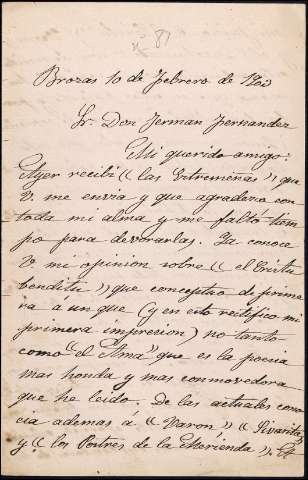 nº 87
Brozas 10 de Febrero de 1903
Sr. Don German Fernandez
Mi querido amigo:
Ayer recibí "las Extremeñas" que
V. me envia y que agradezco con
toda mi alma y me faltó tiem
po para devorarlas. Ya conoce
V mi opinion sobre "el Cristu
benditu" que conceptúo de prime
ra á un que (y en esto rectifico mi
primera impresion) no tanto
como "el Ama" que es la poesia
mas honda y mas conmovedora
que he leido. De las actuales cono
cia ademas á "Varón"
y "los Postres de la Merienda".